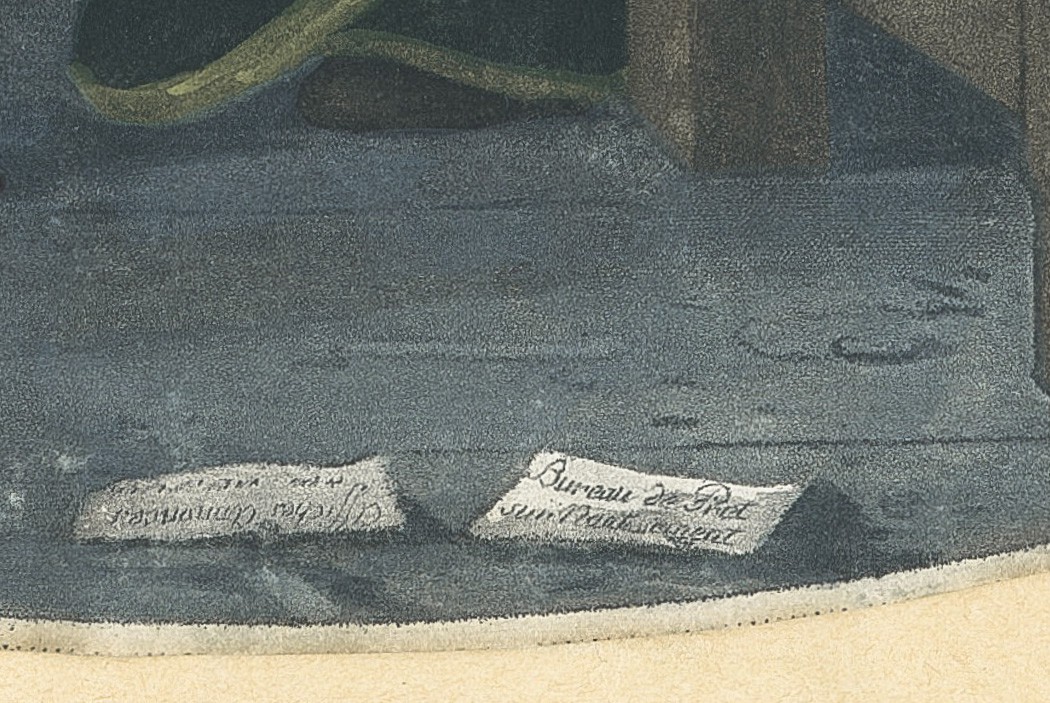 Affiches Annonces
Bureau de Pret
sur Nantissement